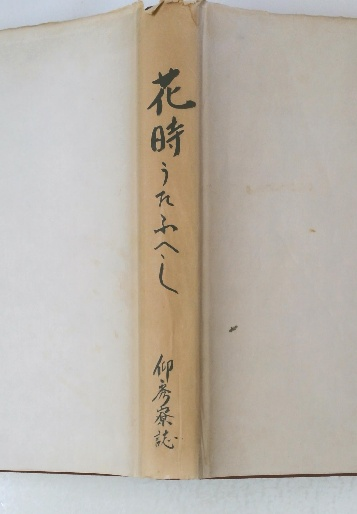 花時うたふへし
仰秀寮誌